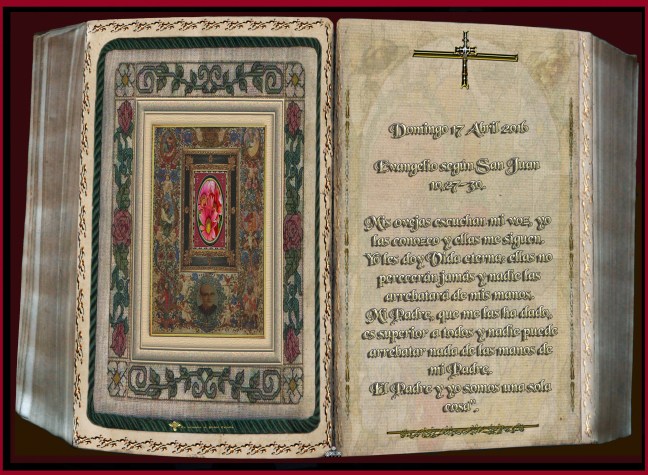 Domingo 17 Abril 2016
Evangelio según San Juan
10,27-30.
Mis ovejas escuchan mi voz, yo
las conozco y ellas me siguen.
Yo les doy Vida eterna: ellas no
perecerán jamás y nadie las
arrebatará de mis manos.
Mi Padre, que me las ha dado,
es superior a todos y nadie puede
arrebatar nada de las manos de
mi Padre.
El Padre y yo somos una sola
cosa".